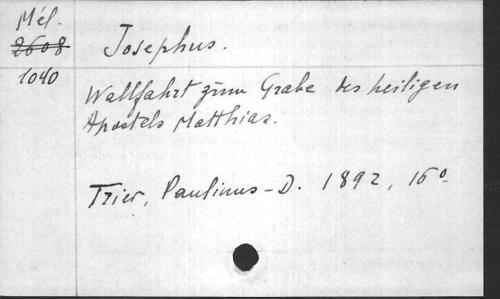 Mél.
2608
1040
Josephus.
Wallfahrt zum Grabe des heiligen
Apostels Matthias.
Trier, Paulinus-D. 1892, 16°